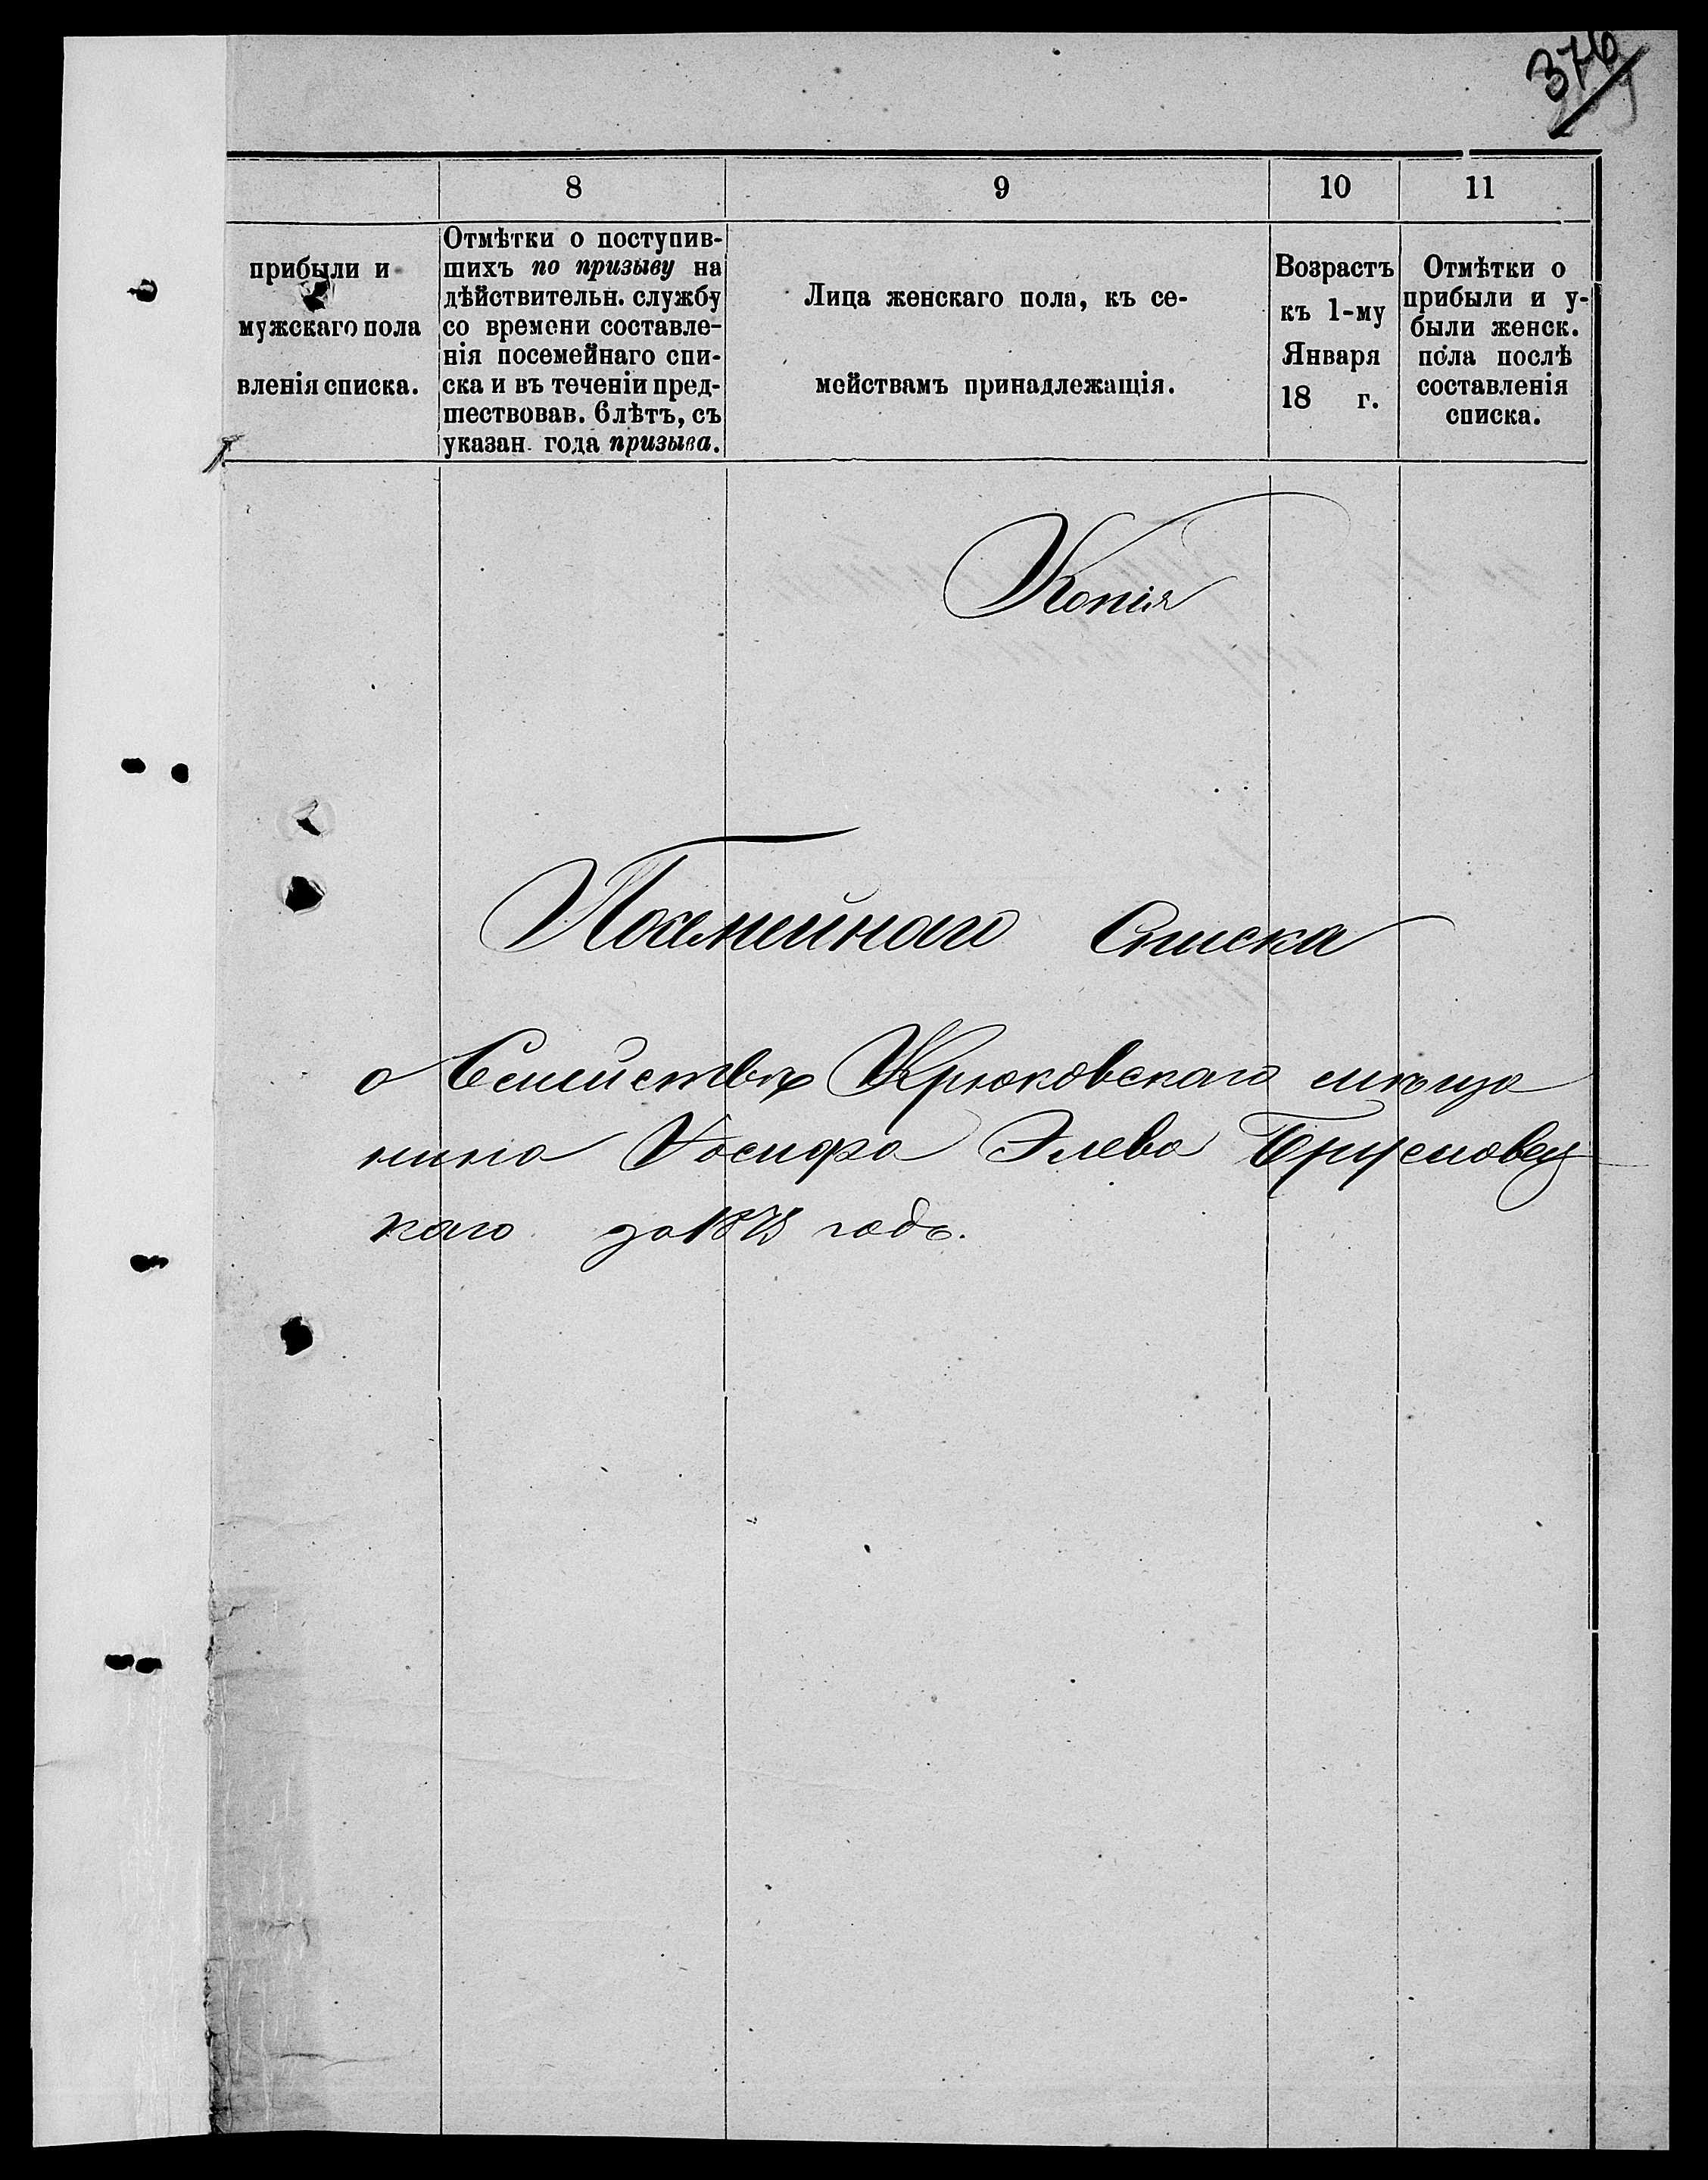 376
8 9 10 11
прибыли и
мужскаго пола
вленія списка.
Отмѣтки о поступив-
шихъ по призыву на
дѣйствительн. службу
со времени составле-
нія посемейнаго спи-
ска и въ теченіи пред-
шествовав. 6 лѣтъ, съ
указан. года призыва.
Лица женскаго пола, къ се-
мействамъ принадлежащія.
Возрастъ
къ 1-му
Января
18 г.
Отмѣтки о
прибыли и у-
были женск.
пола послѣ
составленія
списка.
Копія
Посемейнаго Списка
о Семействѣ Крюковскаго мѣща
нина Іосифа Элева Брусиловец
каго за 1875 годъ.